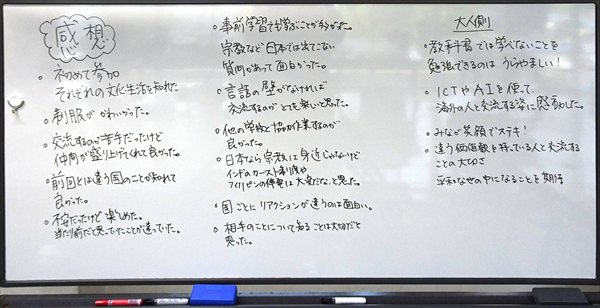 感想
○ 初めて参加
それぞれの文化生活を知れた
○ 制服がかわいかった。
○ 交流するのが苦手だったけど
仲間が盛り上げてくれて良かった。
○ 前回とは違う国のことが知れて
良かった。
○ 不安だったけど楽しめた。
当たり前だと思っていたことが違っていた。
○ 事前学習でも学ぶことが多かった。
宗教など日本では出てこない
質問があって面白かった。
○ 言語の壁がなければ
交流するのがとても楽しいと思った。
○ 他の学校と協力作業するのが
良かった。
○ 日本なら宗教は身近じゃないけど
インドのカースト制度や
フィリピンの停電は大変だな、と思った。
○ 国ごとにリアクションが違うのは面白い。
○ 相手のことについて知ることは大切だと
思った。
大人側
○ 教科書では学べないことを
勉強できるのはうらやましい!
○ ICTやAIを使って
海外の人と交流する姿に感動した。
○ みなが笑顔でステキ!
○ 違う価値観を持っている人と交流する
ことの大切さ
平和な世の中になることを期待